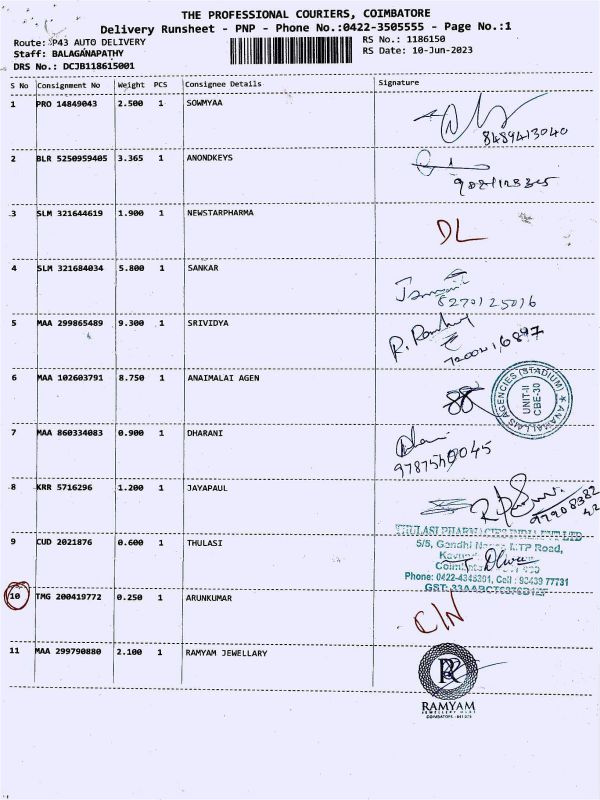 THE PROFESSIONAL COURIERS, COIMBATORE
Delivery Runsheet - PNP - Phone No.:0422-3505555 - Page No.:1
Route: P43 AUTO DELIVERY
RS No.: 1186150
Staff: BALAGANAPATHY
RS Date: 10-Jun-2023
DRS No.: DCJB118615001
S No Consignment No Weight PCS Consignee Details Signature
1 PRO 14849043 2.500 1 SOWMYAA
8489413040
2 BLR 5250959405 3.365 1 ANONDKEYS
3 SLM 321644619 1.900 1 NEWSTARPHARMA DL
4 SLM 321684034 5.800 1 SANKAR
8270125016
5 MAA 299865489 9.300 1 SRIVIDYA
6 MAA 102603791 8.750 1 ANAIMALAI AGEN
ANAMALLAIS AGENCIES (STADIUM)
UNIT-II
CBE-30
7 MAA 860334083 0.900 1 DHARANI
8 KRR 5716296 1.200 1 JAYAPAUL
9 CUD 2021876 0.600 1 THULASI
THULASI PHARMACIES INDIA PVT LTD
5/5, Gandhi Road,
Phone: 0422-4345301, Cell : 93439 77731
10 TMG 200419772 0.250 1 ARUNKUMAR C/N
11 MAA 299790880 2.100 1 RAMYAM JEWELLARY
R
RAMYAM